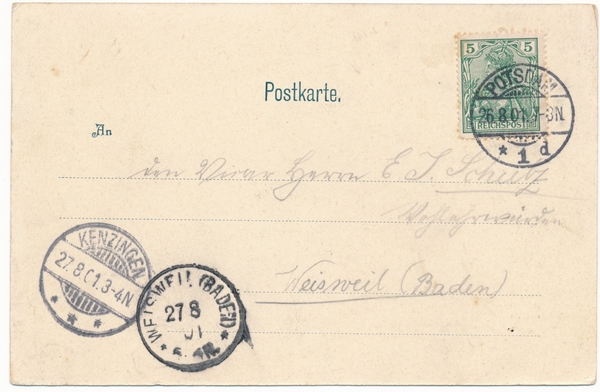 5 5
REICHSPOST
POTSDAM
26.8.01.
* 1 d
Postkarte.
An
den Vicar Herrn E. J. Schulz
Wohlehrwürden
Weisweil (Baden)
KENZINGEN
27.8.01.3-4N
* * *
WEISWEIL (BADEN)
27 8
01